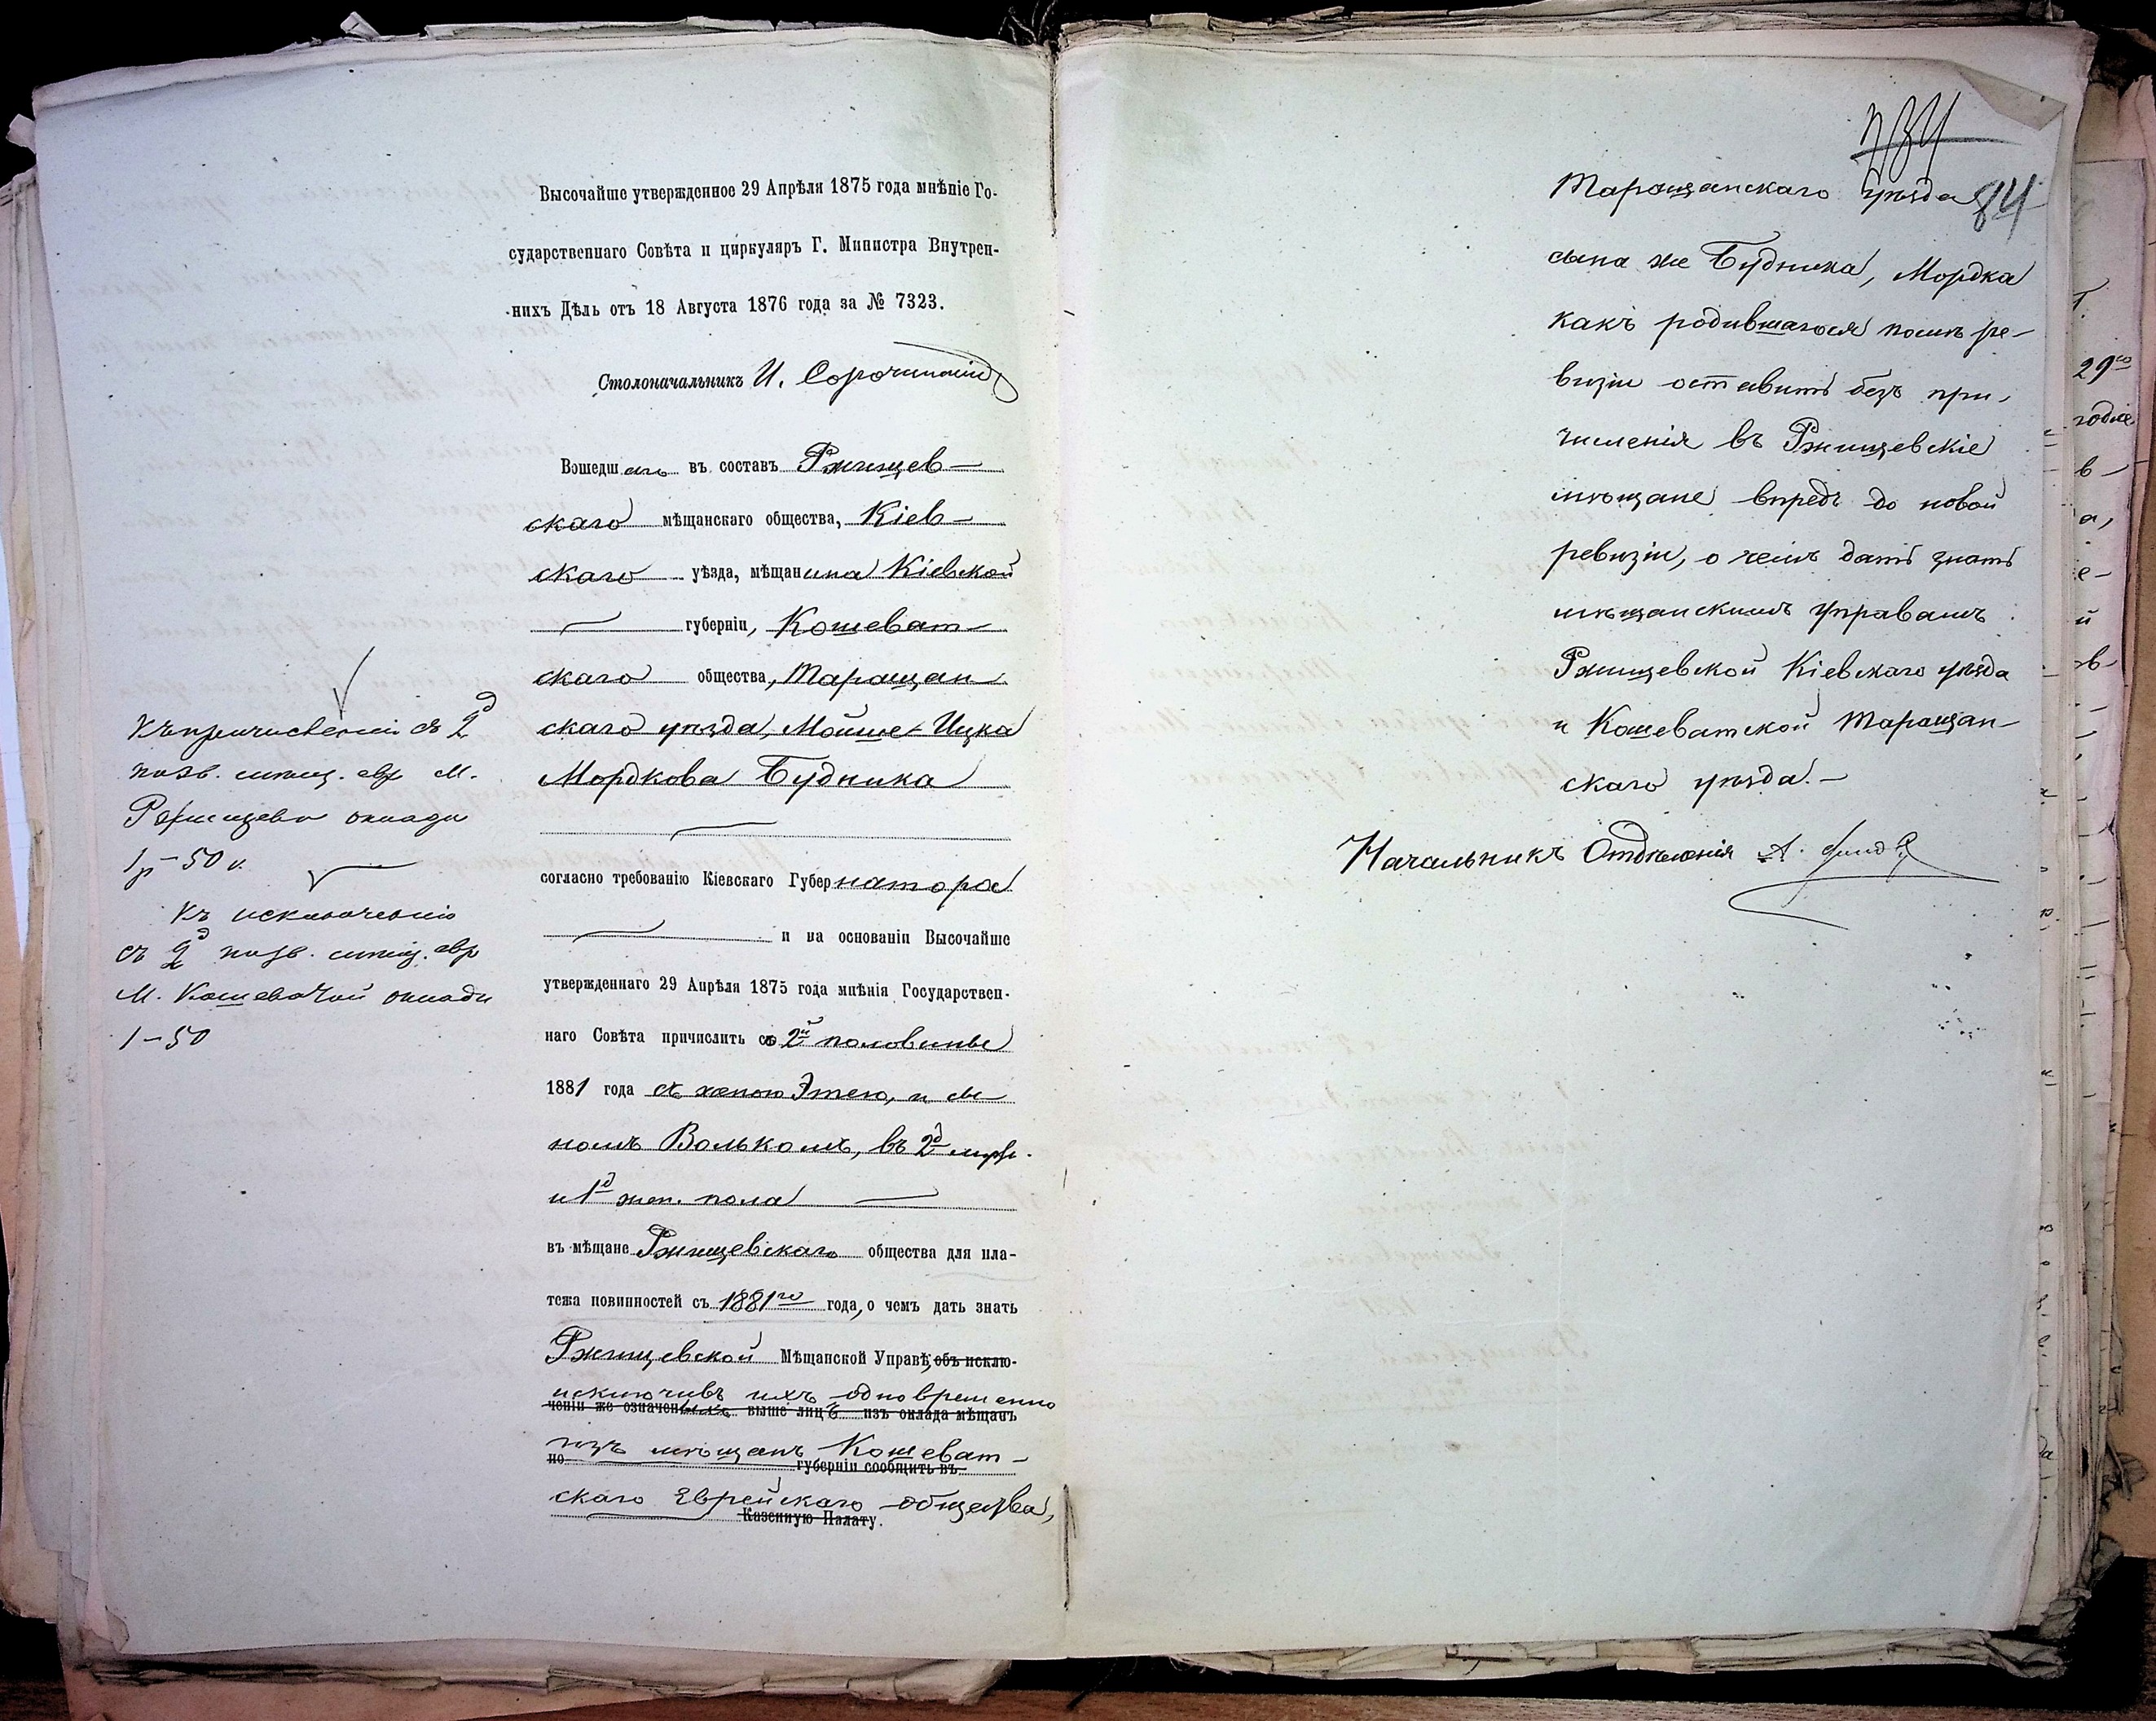 Высочайше утвержденное 29 Апрѣля 1875 года мнѣніе Го-
сударственнаго Совѣта и циркуляръ Г. Министра Внутрен-
нихъ Дѣлъ отъ 18 Августа 1876 года за № 7323.
Столоначальникъ И.
Вошедшаго въ составъ Ржищев-
скаго мѣщанскаго общества, Кіев-
скаго уѣзда, мѣщанина Кіевской
губерніи, Кошеват-
скаго общества, Таращан-
скаго уѣзда, Мойше-Ицка
Мордкова Будника
согласно требованію Кіевскаго Губернатора
и на основаніи Высочайше
утвержденнаго 29 Апрѣля 1875 года мнѣнія Государствен-
наго Совѣта причислить съ 2й половины
1881 года съ женою Этею, и сы-
номъ Волькомъ, въ 2д муж.
и 1д жен. пола
въ мѣщане Ржищевскаго общества для пла-
тежа повинностей съ 1881го года, о чемъ дать знать
Ржищевской Мѣщанской Управѣ, объ исклю-
исключивъ ихъ одновременно
ченіи же означенныхъ выше лицъ изъ оклада мѣщанъ
изъ мѣщанъ Кошеват-
по губерніи сообщить въ
скаго Еврейскаго общества,
Казенную Палату.
Къ причисленію съ 2д
полов. мѣщ. евр. м.
Ржищева окладъ
1р-50 к.
Къ исключенію
съ 2д полов. мѣщ. евр
М. Кошеватой окладъ
1-50
84
Таращанскаго уѣзда
сына же Будника, Мордка
какъ родившагося послѣ ре-
визіи оставить безъ при-
численія въ Ржищевскіе
мѣщане впредь до новой
ревизіи, о чемъ дать знать
мѣщанскимъ управамъ
Ржищевской Кіевскаго уѣзда
и Кошеватской Таращан-
скаго уѣзда.-
Начальникъ Отдѣленія А.